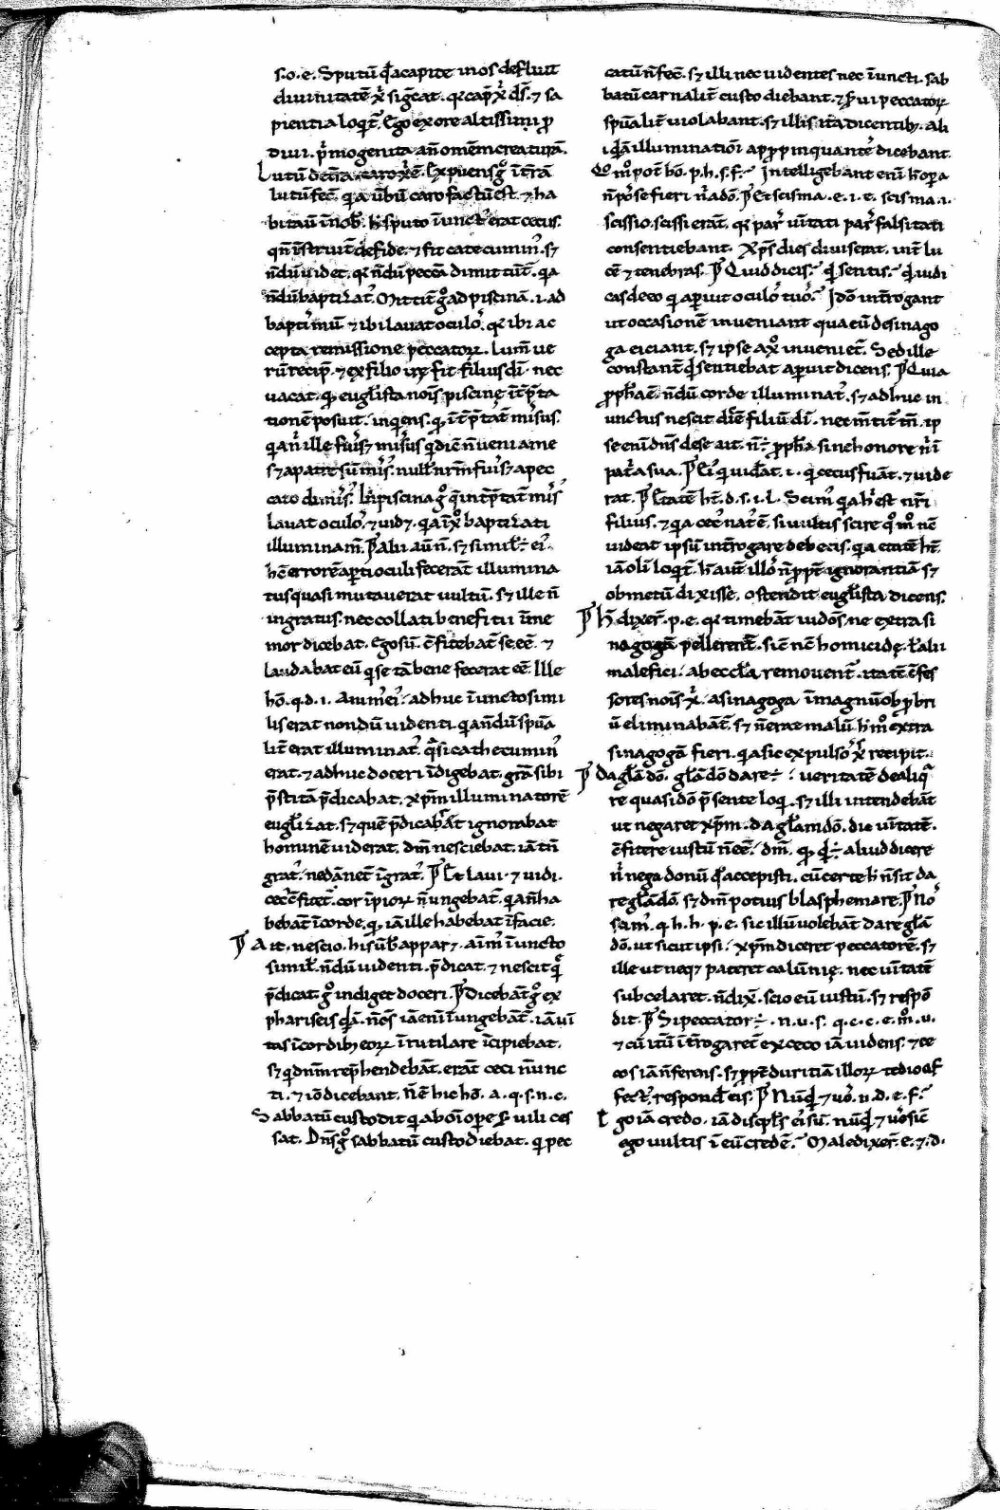 s.o.e. Sputū q̄ a capite in os defluit
diuinitatē x̄ siḡcat. qr cap̄ x̄ ds̄. ⁊ sa
pientia loqt̄. Ego ex ore altissimi p̄
diui. p̄mogenita añ omem creaturā.
Lutū de t̄ra caro x̄ ē. Expuens g° ī t̄rā
lutū fec̄. qa ūbū caro factū est. ⁊ ha
bitauī ī nob̄. h̄ sputo īunct᷒ erat cecus.
qn̄ īstruit̄ de fide. ⁊ fit catecumin᷒. s⁊
n̄dū uidet. qr n̄dū pecc̄a dimittūt̄. qa
n̄dū baptizat᷒. Mittit̄ g° ad piscinā .i. ad
baptism̄ū ⁊ ibi lauat oculo᷒. qr ibi ac
cepta remissione peccatoꝝ. lum̄ ue
rū recip̄. ⁊ ex filio irę fit filius dī. nec
uacat. qd euḡlista nōis piscinę īt̄p̄ta
tionē posuit. inqens. q, īt̄p̄tat̄ missus.
qa n̄ ille fuiss⁊ missus q dīē n̄ ueni a me
s⁊ a patre sū miss᷒. null᷒ nr̄m fuiss⁊ a pec
cato dimiss᷒. In piscina g° q īt̄p̄tat̄ miss᷒
lauat oculo᷒. ⁊ uid⁊. qa ī x̄o baptizati
illuminam̄. ꝑ Alii aū n̄. s⁊ simil᷒ ÷ ei᷒.
hē errorē aꝑti oculi fecerāt illumina
tus quasi mutauerat uultū. s⁊ ille n̄
ingratus. nec collati beneficii īme
mor dicebat. Ego sū. c̄fitebat̄ se eē. ⁊
laudabat eū q se tā bene fecerat eē. Ille
hō. q.d.i. Anim᷒ ei᷒. adhuc īuncto simi
lis erat nondū uidenti. qa n̄dū spūa
lit̄ erat illuminat᷒. q̄si cathecumin᷒
erat. ⁊ adhuc doceri īdigebat. grām sibi
p̄stitā p̄dicabat. xp̄m illuminatorē
euḡlizat. s⁊ quē p̄dicabat ignorabat
hominē uiderat. dm̄ nesciebat. iā tn̄
grat᷒. ne dānet̄ īgrat᷒. ꝑ Et laui. ⁊ uidi.
cec̄ c̄fitet̄. cor ipioꝝ n̄ ungebat̄. qa n̄ ha
bebāt ī corde. q, iā ille habebat ī facie.
ꝑ Ait. nescio. hī sūb appar⁊. aīm᷒ īuncto
simil̄. n̄dū uidenti. p̄dicat. ⁊ nescit q̄
p̄dicat. g° indiget doceri. ꝑ Dicebāt g° ex
phariseis qdā. n̄ oēs iā enī īungebāt̄. iā uī
tas ī cordib; eoꝝ īrutilare īcipiebat.
s⁊ q dn̄m rep̄hendebāt. erāt ceci n̄ unc
ti. ⁊ iō dicebant. n̄ ē hic hō. a. q. s. n. c.
Sabbatū custodit q ab oī oꝑe seruili ces
sat. Dn̄s g° sabbatū custodiebat. q pec
catū n̄ fec̄. s⁊ illi nec uidentes nec īuncti. sab
batū carnalit̄ custodiebant. ⁊ seruī peccatoꝝ
spūalit̄ uiolabant. s⁊ illis ita dicentib;. ali
i qdā illuminatiōī approp̄inquantes dicebant.
Qm̄° pot̄ hō. p. h. s. f.? Intelligebant enī h̄ oꝑa
n̄ pos̄e fieri n̄ a dō. ꝑ Et scisma. e. i. e. scisma .i.
scissio. scissi erāt. qr pars uītati pars falsitati
consentiebant. Xp̄s dies diuiserat. int̄ lu
cē ⁊ tenebras. ꝑ Quid dicis? q sentis? q iudi
cas de eo q aꝑuit oculo᷒ tuo᷒? Idō int̄rogant
ut occasionē inueniant qua eū de sinago
ga eiciant. s⁊ ipse a x̄o inueniet̄. Sed ille
constant̄ q sentiebat aꝑuit dicens. ꝑ Quia
ꝓph̄a ē. n̄dū corde illuminat᷒. s⁊ adhuc in
unctus nescit dicē filiū dī. nec m̄tit̄ tn̄. ip
se enī dn̄s de se ait. n̄ ÷ ꝓph̄a sine honore n̄ ī
pat̄a sua. ꝑ Ei᷒ q uidāt .i. q cecus fuāt. ⁊ uide
rat. ꝑ Etatē ht̄. d. s. i. l. Scim᷒ qa h̄ est nr̄i
filius. ⁊ qa cec᷒ nat᷒ ē. si uultis scire q° m° nē
uideat ipsū int̄rogare debetis. qa etatē ht̄.
iā oli loqt̄. h̄ aut̄ illo᷒ n̄ ꝓpt̄ ignorantiā s⁊
ob metū dixisse. ostendit euḡlista dicens.
ꝑ H̄ dixer̄. p. e. qr timebāt iudos̄. ne extra si
nagogā pellerent̄. sic̄ nē homicidę. l̄ alii
malefici. ab ecclā remouent̄. ita tē c̄fes
sores nōis x̄. a sinagoga ī magnū obprobri
ū eliminabāt̄. s⁊ n̄ erat malū h̄ m° extra
sinagogā fieri. qa sic expulso᷒ x̄ recipit.
ꝑ Da glām dō. glām dō dare ÷. ueritatē de aliq̄
re quasi dō p̄sente loqi. s⁊ illi intendebāt
ut negaret xp̄m. da glām dō. dic uītatē.
c̄fitere iustū n̄ eē. dm̄. qd q̄ ÷ aliud dicere
n̄ nega donū qd accepisti. cū certe h̄ n̄ sit da
re glām dō. s⁊ dm̄ potius blasphemare. ꝑ No᷒
scim᷒. q. h. h. p. e. sic illū uolebant dare glām
dō. ut sicut ipsi. xp̄m diceret peccatorē. s⁊
ille ut neq⁊ pateret calūnię. nec uītatē
subcelaret. n̄ dix̄. scio eū iustū. s⁊ respō
dit. ꝑ Si peccator ÷. n. u. s. q. c. c. e. m°. u.
⁊ cū itū īt̄rogaret̄ ex ceco iā uidens. ⁊ ce
cos iā n̄ ferens. s⁊ ꝓpt̄ duritiā illoꝝ tedio af
fect᷒. respond̄ eis. ꝑ Nūqd ⁊ uos. u. d. e. f.?
Ego iā credo. iā discipls̄ ei᷒ sū. nūqd ⁊ uos sic̄
ego uultis ī eū credē? Maledixer̄. e. ⁊. d.